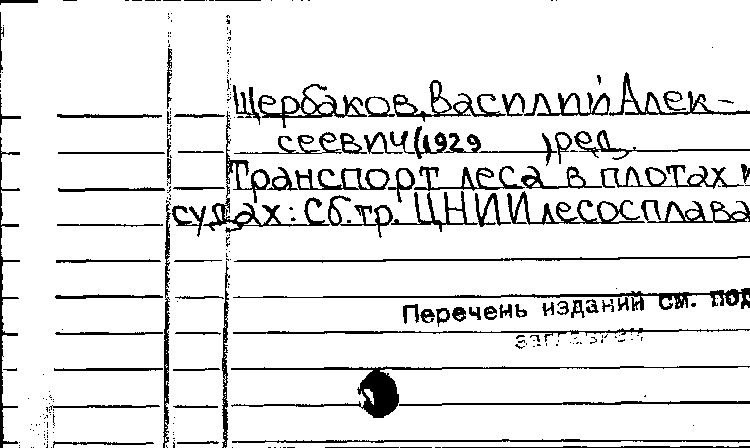 Щербаков, Василий Алек-
сеевич (1929 ) ред.
Транспорт леса в плотах и
судах: Сб. тр. ЦНИИ лесосплава
Перечень изданий см. под
заглавием